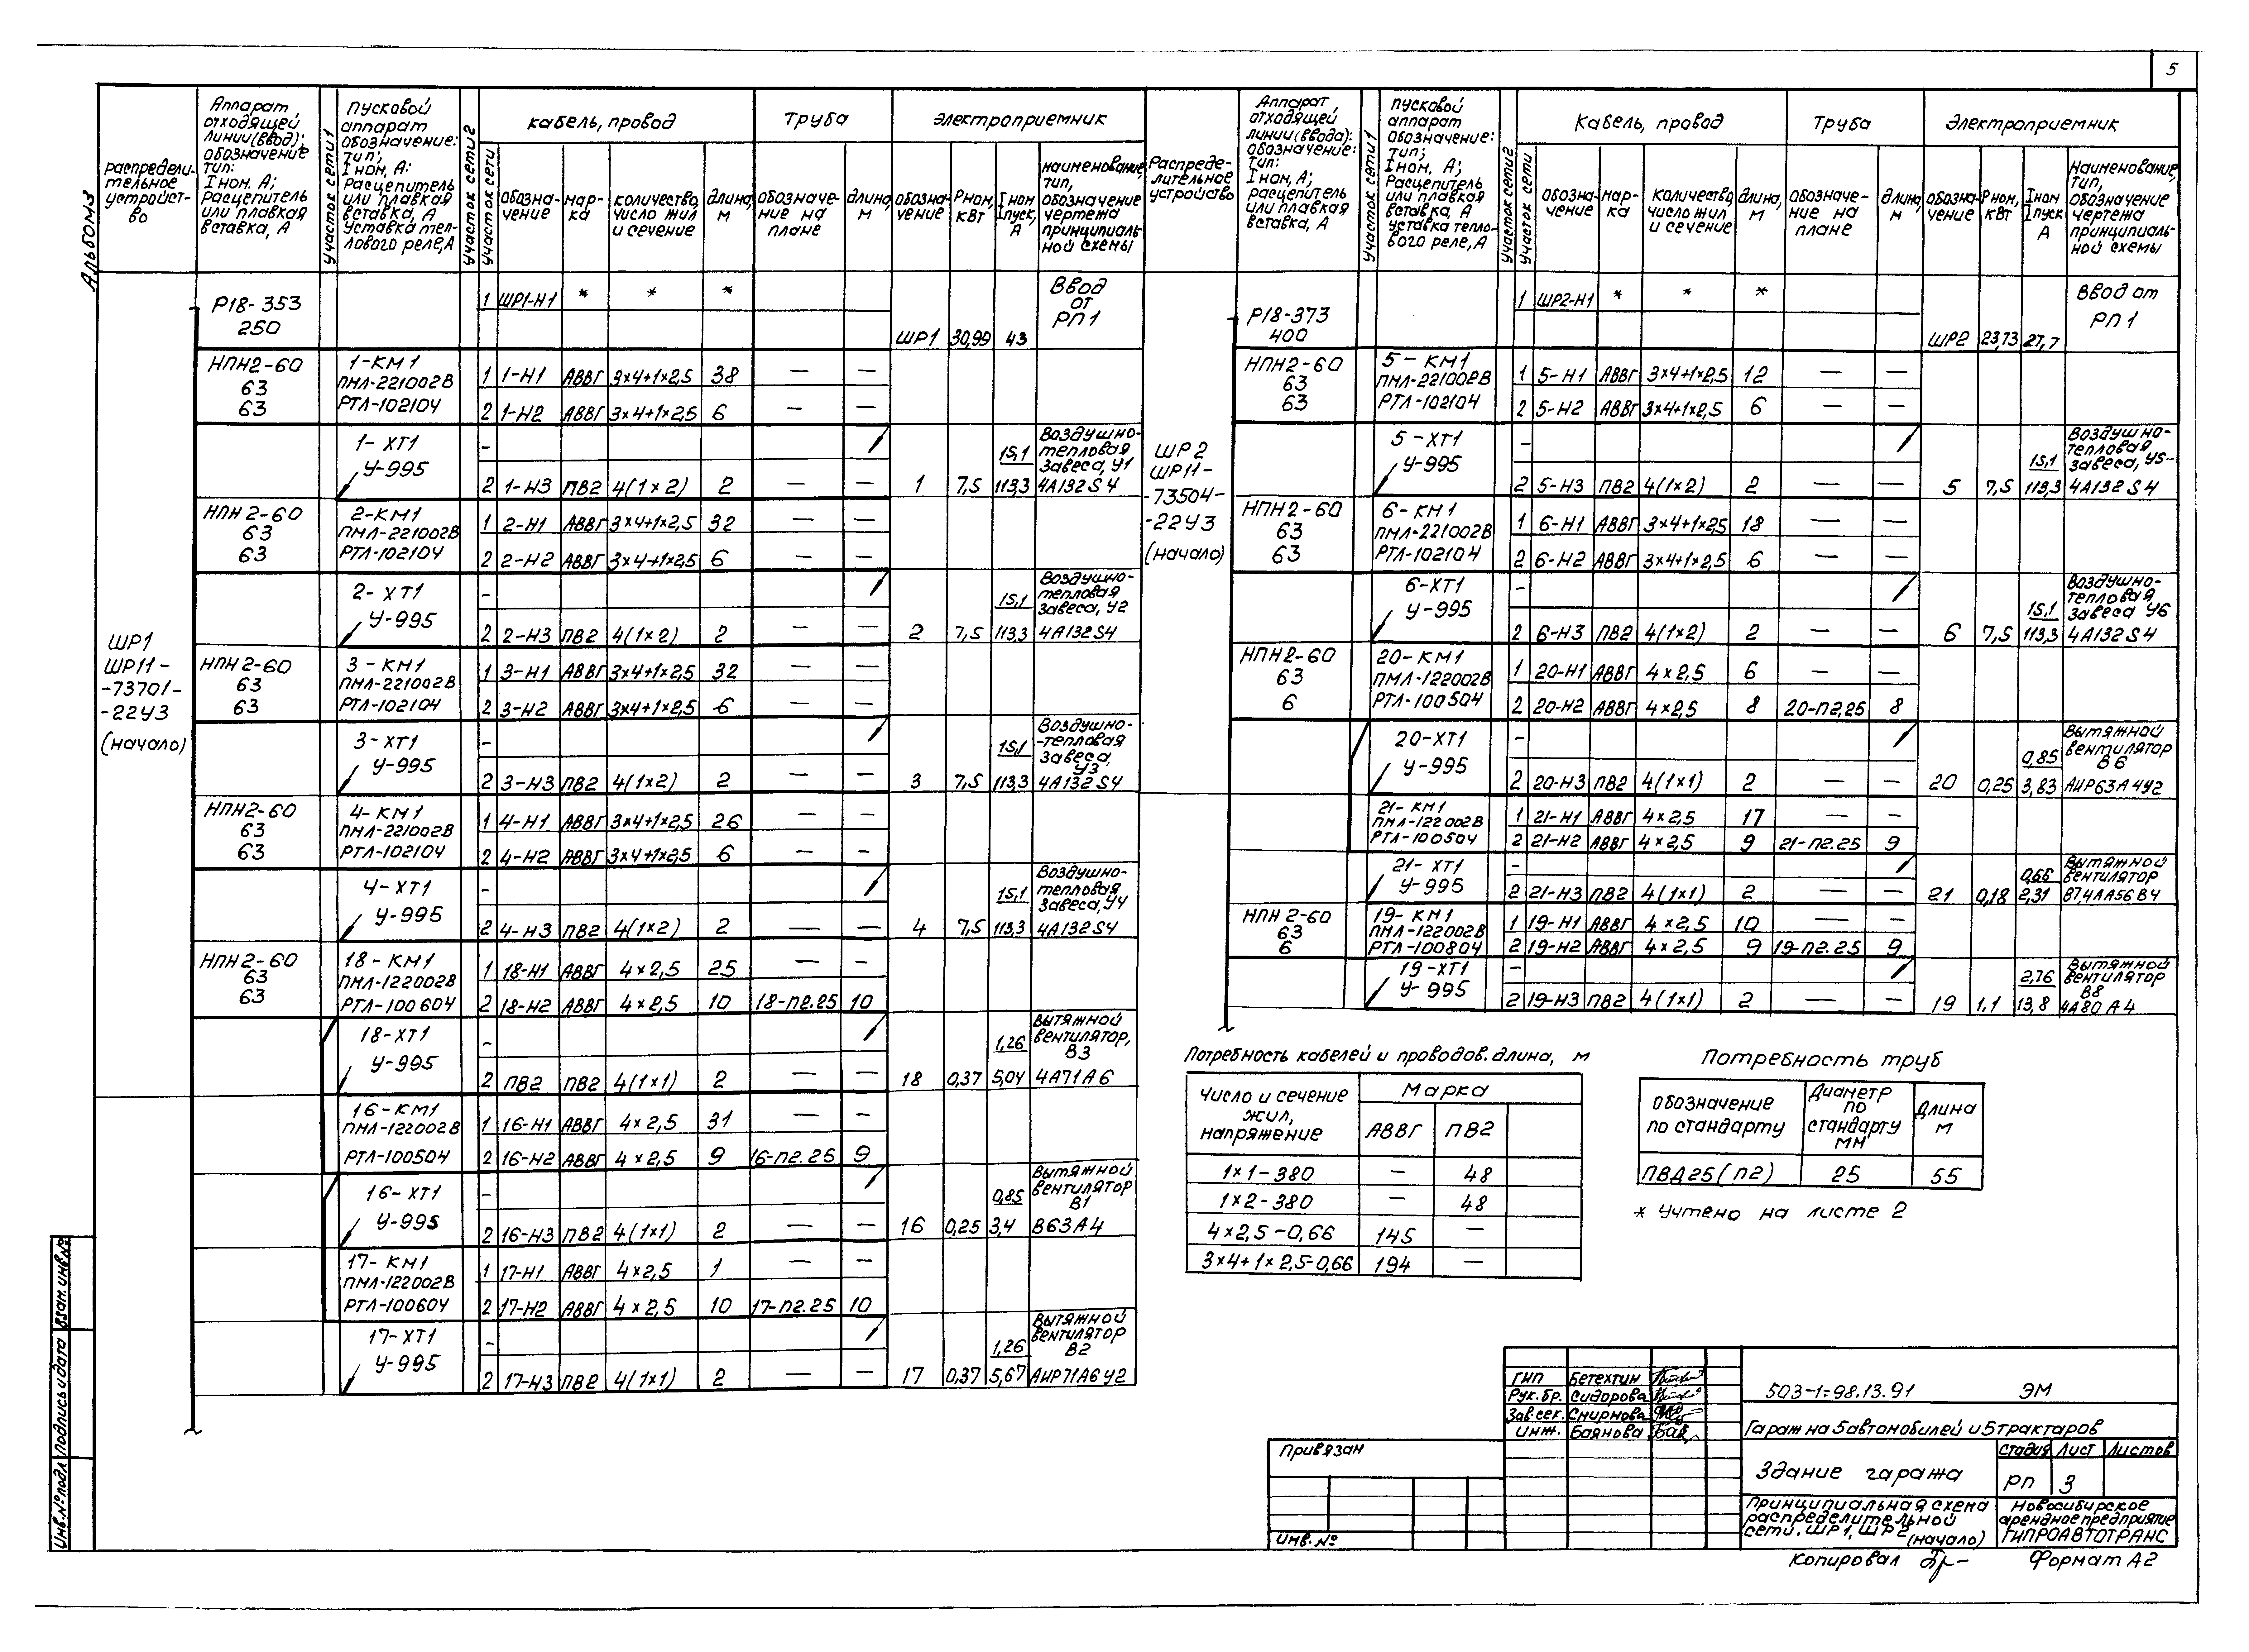 5
Альбом 3
Распредели-
тельное
устройст-
во
Аппарат
отходящей
линии (ввод);
обозначение
тип:
Iном. А;
Расцепитель
или плавкая
вставка, А
Участок сети 1
Пусковой
аппарат
обозначение:
тип;
Iном, А:
Расцепитель
или плавкая
вставка, А
Уставка теп-
лового реле, А
Участок сети 2
Участок сети
Кабель, провод
Обозна-
чение
Мар-
ка
Количество,
число жил
и сечение
Длина,
м
Труба
Обозначе-
ние на
плане
Длина,
м
Электроприемник
Обозна-
чение
Рном,
кВт
Iном
Iпуск,
А
Наименование,
тип,
обозначение
чертежа
принципиаль-
ной схемы
ШР1
ШР11-
-73701-
-22У3
(начало)
Р18-353
250
1 ШР1-Н1 * * *
ШР1 30,99 43
Ввод
от
РП1
НПН2-60
63
63
1-КМ1
ПМЛ-221002В
РТЛ-102104
1 1-Н1 АВВГ 3×4+1×2,5 38 — —
2 1-Н2 АВВГ 3×4+1×2,5 6 — —
1-ХТ1
У-995
-
2 1-Н3 ПВ2 4(1×2) 2
1 7,5 15,1
113,3
Воздушно-
тепловая
завеса, У1
4А132S4
НПН2-60
63
63
2-КМ1
ПМЛ-221002В
РТЛ-102104
1 2-Н1 АВВГ 3×4+1×2,5 32 — —
2 2-Н2 АВВГ 3×4+1×2,5 6 — —
2-ХТ1
У-995
-
2 2-Н3 ПВ2 4(1×2) 2 — —
2 7,5 15,1
113,3
Воздушно-
тепловая
завеса, У2
4А132S4
НПН2-60
63
63
3-КМ1
ПМЛ-221002В
РТЛ-102104
1 3-Н1 АВВГ 3×4+1×2,5 32 — —
2 3-Н2 АВВГ 3×4+1×2,5 6 — —
3-ХТ1
У-995
-
2 3-Н3 ПВ2 4(1×2) 2 — —
3 7,5 15,1
113,3
Воздушно-
-тепловая
завеса,
У3
4А132S4
НПН2-60
63
63
4-КМ1
ПМЛ-221002В
РТЛ-102104
1 4-Н1 АВВГ 3×4+1×2,5 26 — —
2 4-Н2 АВВГ 3×4+1×2,5 6 — —
4-ХТ1
У-995
-
2 4-Н3 ПВ2 4(1×2) 2 — —
4 7,5 15,1
113,3
Воздушно-
тепловая
завеса, У4
4А132S4
НПН2-60
63
63
18-КМ1
ПМЛ-122002В
РТЛ-100604
1 18-Н1 АВВГ 4×2,5 25 — —
2 18-Н2 АВВГ 4×2,5 10 18-П2.25 10
18-ХТ1
У-995
-
2 ПВ2 ПВ2 4(1×1) 2 — —
18 0,37 1,26
5,04
Вытяжной
вентилятор,
В3
4А71А6
16-КМ1
ПМЛ-122002В
РТЛ-100504
1 16-Н1 АВВГ 4×2,5 31 — —
2 16-Н2 АВВГ 4×2,5 9 16-П2.25 9
16-ХТ1
У-995
-
2 16-Н3 ПВ2 4(1×1) 2 — —
16 0,25 0,85
3,4
Вытяжной
вентилятор
В1
В63А4
17-КМ1
ПМЛ-122002В
РТЛ-100604
1 17-Н1 АВВГ 4×2,5 1 — —
2 17-Н2 АВВГ 4×2,5 10 17-П2.25 10
17-ХТ1
У-995
-
2 17-Н3 ПВ2 4(1×1) 2 — —
17 0,37 1,26
5,67
Вытяжной
вентилятор
В2
АИР71А6У2
Распреде-
лительное
устройство
Аппарат,
отходящей
линии (ввода);
обозначение:
тип:
Iном, А;
расцепитель
или плавкая
вставка, А
Участок сети 1
Пусковой
аппарат
обозначение:
тип;
Iном, А;
Расцепитель
или плавкая
вставка, А
уставка тепло-
вого реле, А
Участок сети 2
Участок сети
Кабель, провод
Обозна-
чение
Мар-
ка
Количество,
число жил
и сечение
Длина,
м
Труба
Обозначе-
ние на
плане
Длина,
м
Электроприемник
Обозна-
чение
Рном,
кВт
Iном
Iпуск
А
Наименование,
тип,
обозначение
чертежа
принципиаль-
ной схемы
ШР2
ШР11-
-73504-
-22У3
(начало)
Р18-373
400
1 ШР2-Н1 * * *
ШР2 23,73 27,7
Ввод от
РП1
НПН2-60
63
63
5-КМ1
ПМЛ-221002В
РТЛ-102104
1 5-Н1 АВВГ 3×4+1×2,5 12 — —
2 5-Н2 АВВГ 3×4+1×2,5 6 — —
5-ХТ1
У-995
-
2 5-Н3 ПВ2 4(1×2) 2 — —
5 7,5 15,1
113,3
Воздушно-
тепловая
завеса, У5-
4А132S4
НПН2-60
63
63
6-КМ1
ПМЛ-221002В
РТЛ-102104
1 6-Н1 АВВГ 3×4+1×25 18 — —
2 6-Н2 АВВГ 3×4+1×2,5 6 — —
6-ХТ1
У-995
-
2 6-Н3 ПВ2 4(1×2) 2 — —
6 7,5 15,1
113,3
Воздушно-
тепловая
завеса У6
4А132S4
НПН2-60
63
6
20-КМ1
ПМЛ-122002В
РТЛ-100504
1 20-Н1 АВВГ 4×2,5 6 — —
2 20-Н2 АВВГ 4×2,5 8 20-П2,25 8
20-ХТ1
У-995
-
2 20-Н3 ПВ2 4(1×1) 2 — —
20 0,25 0,85
3,83
Вытяжной
вентилятор
В6
АИР63А4У2
21-КМ1
ПМЛ-122002В
РТЛ-100504
1 21-Н1 АВВГ 4×2,5 17 — —
2 21-Н2 АВВГ 4×2,5 9 21-П2.25 9
21-ХТ1
У-995
-
2 21-Н3 ПВ2 4(1×1) 2 — —
21 0,18 0,66
2,31
Вытяжной
вентилятор
В7,4АА56В4
НПН2-60
63
6
19-КМ1
ПМЛ-122002В
РТЛ-100804
1 19-Н1 АВВГ 4×2,5 10 — —
2 19-Н2 АВВГ 4×2,5 9 19-П2.25 9
19-ХТ1
У-995
-
2 19-Н3 ПВ2 4(1×1) 2 — —
19 1.1 2,76
13,8
Вытяжной
вентилятор
В8
4А80А4
Потребность кабелей и проводов. длина, м
Число и сечение
жил,
напряжение
Марка
АВВГ ПВ2
1×1-380 — 48
1×2-380 — 48
4×2,5-0,66 145 —
3×4+1×2,5-0,66 194 —
Потребность труб
Обозначение
по стандарту
Диаметр
по
стандарту
мм
Длина
м
ПВД25(П2) 25 55
* Учтено на листе 2
ГИП Бетехтин
Рук.бр. Сидорова
Зав.сек. Смирнова
Инж. Баянова
Привязан
Инв.№
503-1-98.13.91 ЭМ
Гараж на 5 автомобилей и 5 тракторов
Здание гаража
Стадия Лист Листов
РП 3
Принципиальная схема
распределительной
сети. ШР1, ШР2
(начало)
Новосибирское
арендное предприятие
ГИПРОАВТОТРАНС
Копировал
Формат А2
Инв.№ подл. Подпись и дата Взам.инв.№